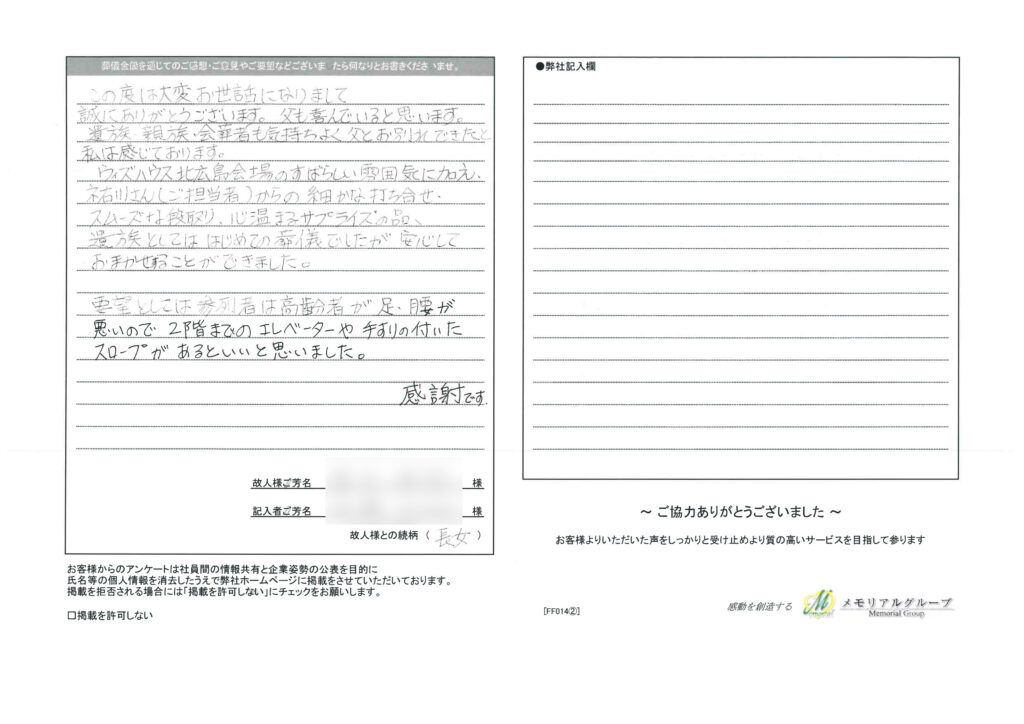 葬儀全般を通じてのご感想・ご意見やご要望などございましたら何なりとお書きくださいませ。
この度は大変お世話になりまして
誠にありがとうございます。父も喜んでいると思います。
遺族・親族・会葬者も気持ちよく父とお別れできたと
私は感じております。
ウィズハウス北広島会場のすばらしい雰囲気に加え、
祐川さん(ご担当者)からの細かな打ち合せ・
スムーズな段取り、心温まるサプライズの品、
遺族としてははじめての葬儀でしたが安心して
おまかせすることができました。
要望としては参列者は高齢者が足・腰が
悪いので2階までのエレベーターや手すりの付いた
スロープがあるといいと思いました。
感謝です。
故人様ご芳名 様
記入者ご芳名 様
故人様との続柄 ( 長女 )
お客様からのアンケートは社員間の情報共有と企業姿勢の公表を目的に
氏名等の個人情報を消去したうえで弊社ホームページに掲載をさせていただいております。
掲載を拒否される場合には「掲載を許可しない」にチェックをお願いします。
□掲載を許可しない
●弊社記入欄
~ ご協力ありがとうございました ~
お客様よりいただいた声をしっかりと受け止めより質の高いサービスを目指して参ります
[FF014②]
感動を創造する
メモリアルグループ
Memorial Group